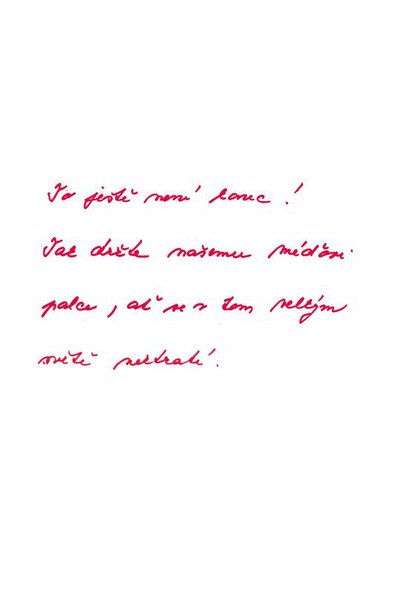 To ještě není konec!
Tak držte našemu médově
palce, ať se v tom velkým
světě neztratí.